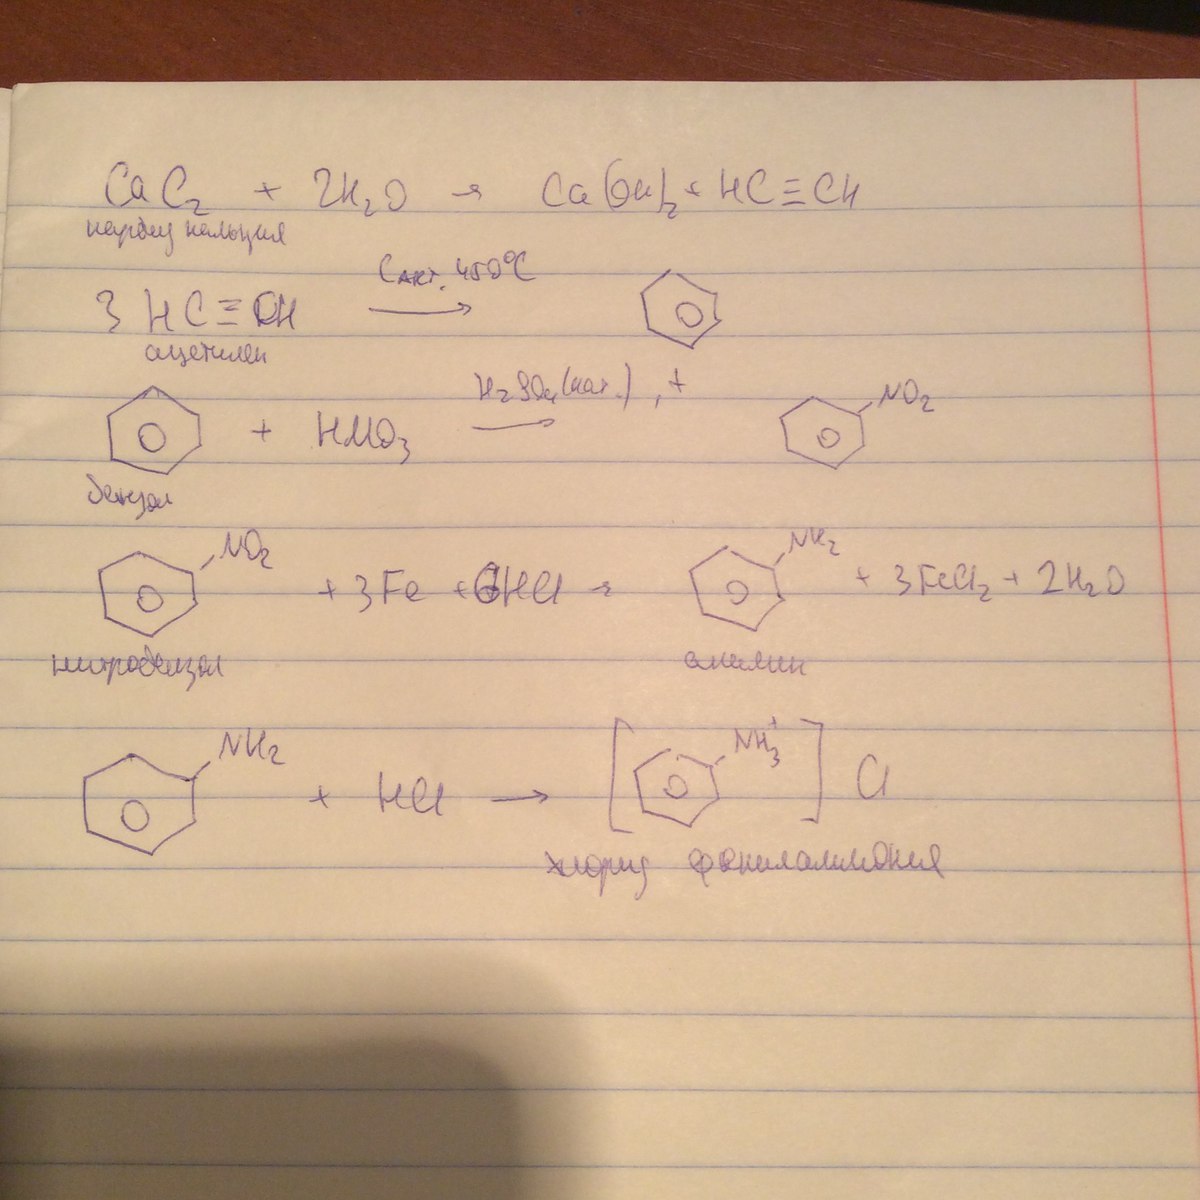 CaC₂ + 2H₂O → Ca(OH)₂ + HC≡CH
карбид кальция
Cакт. 450°C
3 HC≡CH →
ацетилен
H₂SO₄(кат.), t
+ HNO₃ → NO₂
бензол
NO₂ + 3Fe + 6HCl → NH₂ + 3FeCl₂ + 2H₂O
нитробензол анилин
NH₂ + HCl → [NH₃⁺] Cl
хлорид фениламмония